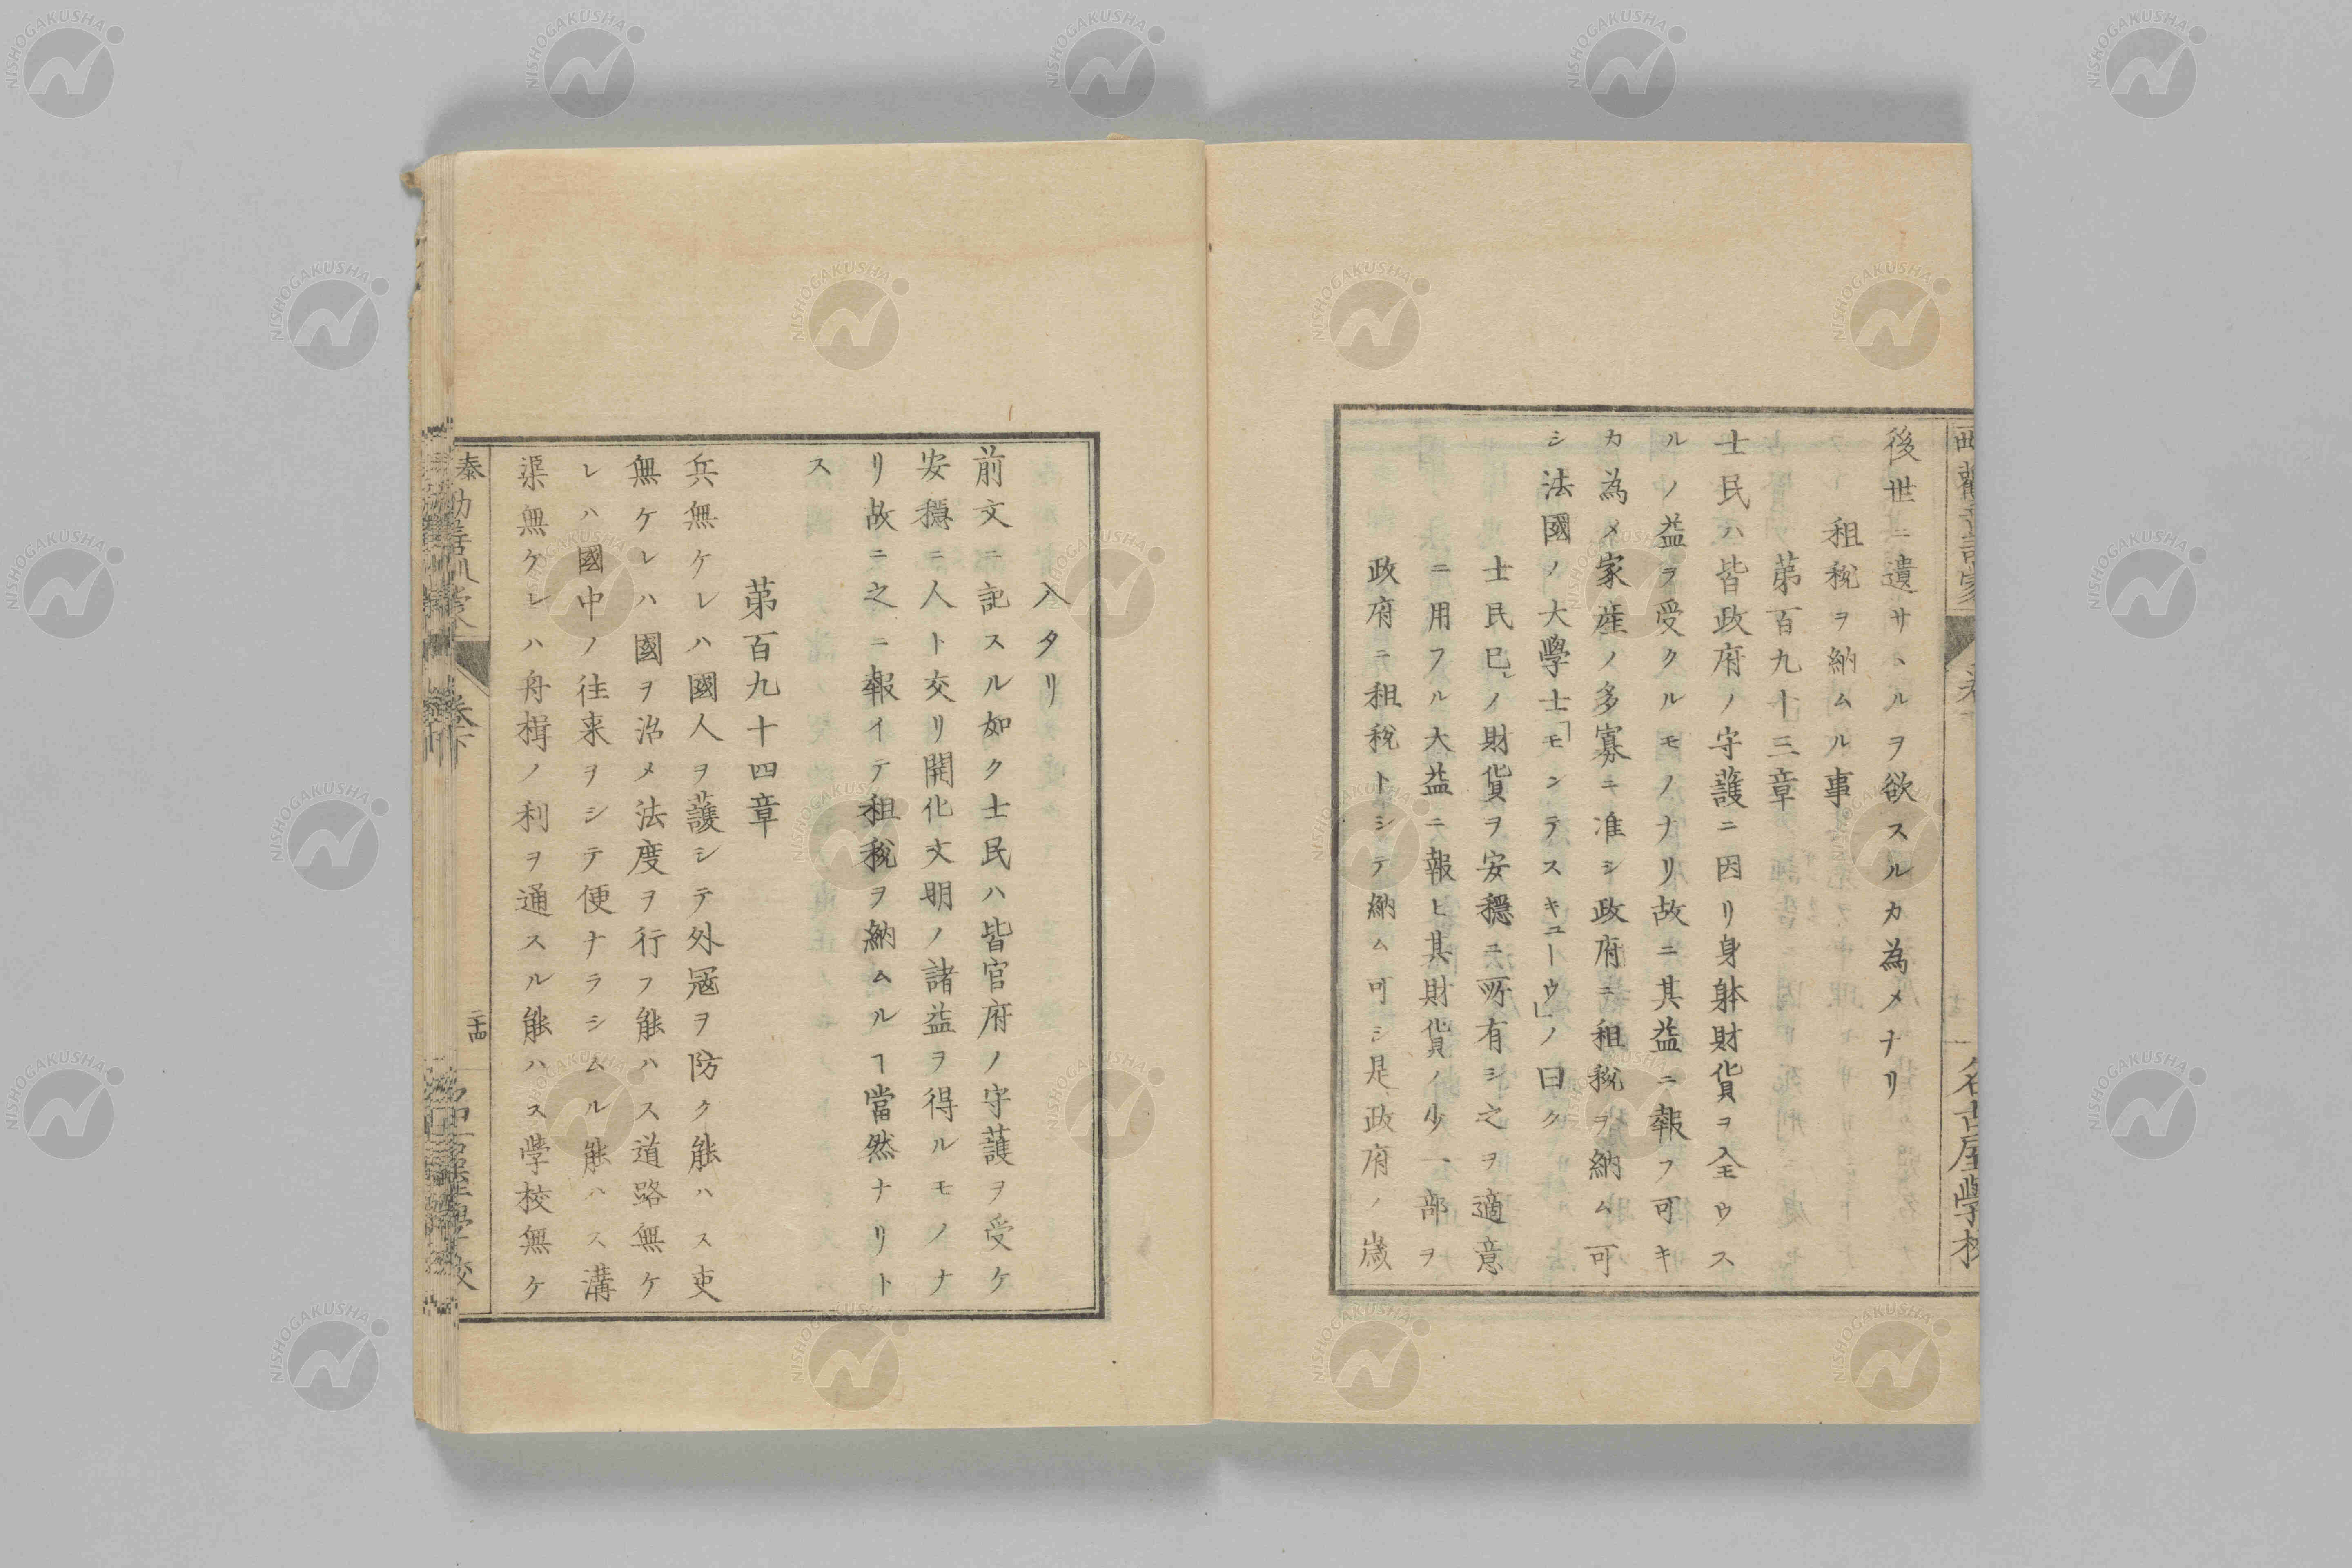 後世ニ遺サヽルヲ欲スルカ為メナリ
租税ヲ納ムル事
第百九十三章
士民ハ皆政府ノ守護ニ因リ身躰財貨ヲ全ウス
ルノ益ヲ受クルモノナリ故ニ其益ニ報フ可キ
カ為メ家産ノ多寡ニ准シ政府ニ租税ヲ納ム可
シ法國ノ大學士「モンテスキューウ」ノ曰ク
士民已ノ財貨ヲ安穏ニ所有シ之ヲ適意
ニ用フル大益ニ報ヒ其財貨ノ少一部ヲ
政府ニ租税トシテ納ム可シ是政府ノ歳
入タリ
前文ニ記スル如ク士民ハ皆官府ノ守護ヲ受ケ
安穏ニ人ト交リ開化文明ノ諸益ヲ得ルモノナ
リ故ニ之ニ報イテ租税ヲ納ムルヿ當然ナリト
ス
第百九十四章
兵無ケレハ國人ヲ護シテ外冦ヲ防ク能ハス吏
無ケレハ國ヲ治メ法度ヲ行フ能ハス道路無ケ
レハ國中ノ往来ヲシテ便ナラシムル能ハス溝
渠無ケレハ舟楫ノ利ヲ通スル能ハス學校無ケ
泰
卷下
二十四
名古屋學校
NISHOGAKUSHA